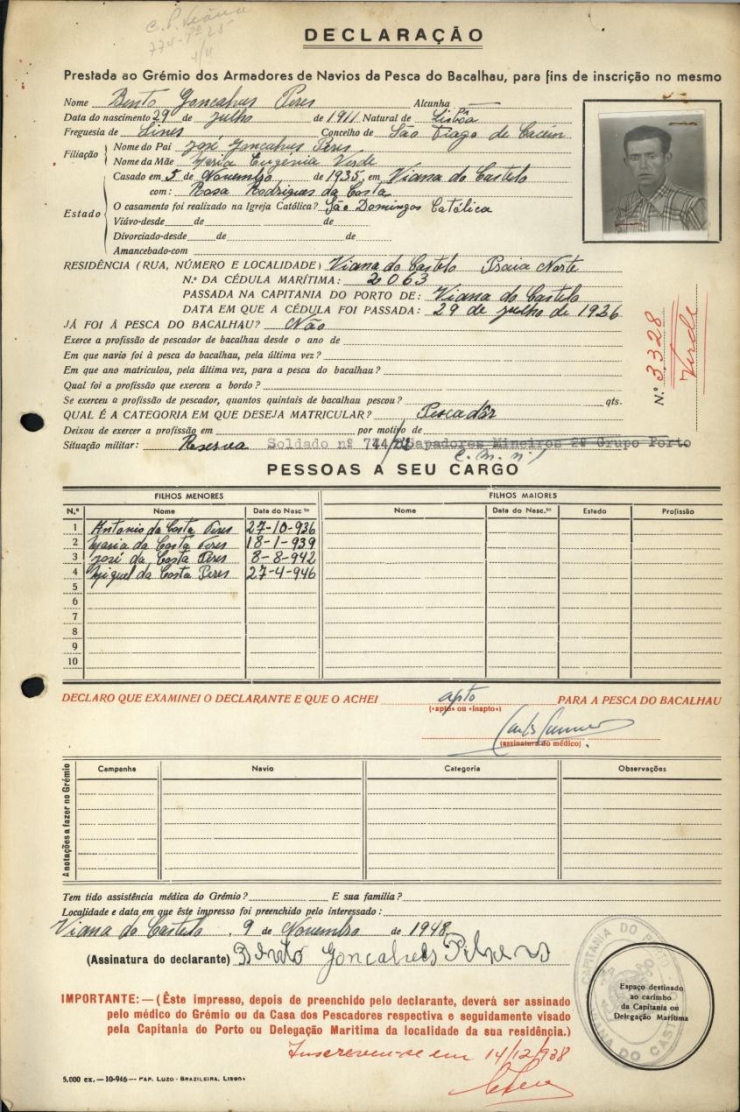 C. P. Viana
DECLARAÇÃO
Prestada ao Grémio dos Armadores de Navios da Pesca do Bacalhau, para fins de inscrição no mesmo
Nome Bento Goncalves Peres Alcunha —
Data do nascimento 29 de julho de 1911 Natural de Lisbôa
Freguesia de Sines Concelho de São Tiago de Cacem
Filiação
Nome do Pai José Goncalves Peres
Nome da Mãe Maria Eugenia Verde
Estado
Casado em 5 de Novembro de 1935, em Viana do Castelo
com: Rosa Rodrigues da Costa
O casamento foi realizado na Igreja Católica? São Domingos Católica
Viúvo-desde de de
Divorciado-desde de de
Amancebado-com
RESIDÊNCIA (RUA, NÚMERO E LOCALIDADE) Viana do Castelo Praia Norte
N.º DA CÉDULA MARÍTIMA: 2063
PASSADA NA CAPITANIA DO PORTO DE: Viana do Castelo
DATA EM QUE A CÉDULA FOI PASSADA: 29 de julho de 1926
JÁ FOI Á PESCA DO BACALHAU? Não
Exerce a profissão de pescador de bacalhau desde o ano de
Em que navio foi à pesca do bacalhau, pela última vez?
Em que ano matriculou, pela última vez, para a pesca do bacalhau?
Qual foi a profissão que exerceu a bordo?
Se exerceu a profissão de pescador, quantos quintais de bacalhau pescou? qts.
QUAL É A CATEGORIA EM QUE DESEJA MATRICULAR? Pescadôr
Deixou de exercer a profissão em por motivo de
Situação militar: Reserva Soldado nº 744/ Sapadores Mineiros 2º Grupo Porto
N.º 3328
Verde
PESSOAS A SEU CARGO
FILHOS MENORES FILHOS MAIORES
N.º Nome Data do Nasc.to Nome Data do Nasc.to Estado Profissão
1 Antonio da Costa Peres 27-10-936
2 Maria da Costa Peres 18-1-939
3 José da Costa Peres 8-8-942
4 Miguel da Costa Peres 27-4-946
5
6
7
8
9
10
DECLARO QUE EXAMINEI O DECLARANTE E QUE O ACHEI apto PARA A PESCA DO BACALHAU
(«apto» ou «inapto»)
(assinatura do médico)
Anotações a fazer no Grémio
Campanha Navio Categoria Observações
Tem tido assistência médica do Grémio? E sua família?
Localidade e data em que êste impresso foi preenchido pelo interessado:
Viana do Castelo, 9 de Novembro de 1948
(Assinatura do declarante) Bento Goncalves
CAPITANIA DO PORTO
VIANA DO CASTELO
Espaço destinado
ao carimbo
da Capitania ou
Delegação Marítima
IMPORTANTE:—(Êste impresso, depois de preenchido pelo declarante, deverá ser assinado
pelo médico do Grémio ou da Casa dos Pescadores respectiva e seguidamente visado
pela Capitania do Porto ou Delegação Maritima da localidade da sua residência.)
Inscreveu-se em 14/12/938
5.000 EX. — 10-946 — PAP. LUZO-BRAZILEIRA, LISBOA